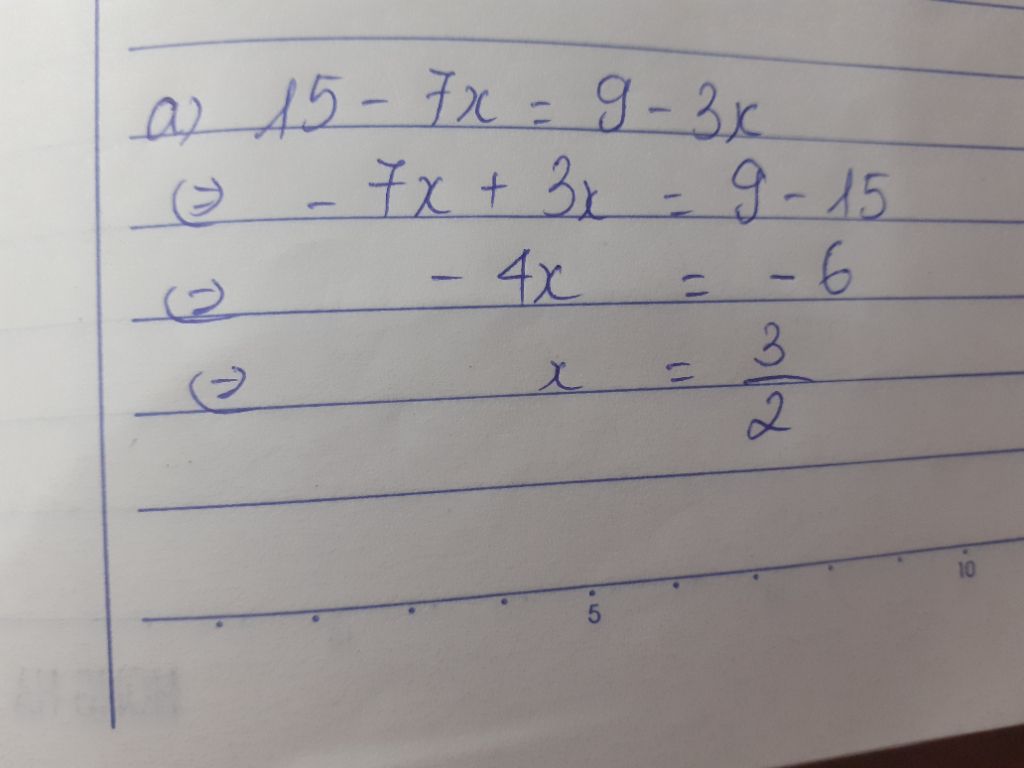 a) 15 - 7x = 9 - 3x
(=) - 7x + 3x = 9 - 15
(=) - 4x = - 6
(=) x = 3/2
5 10